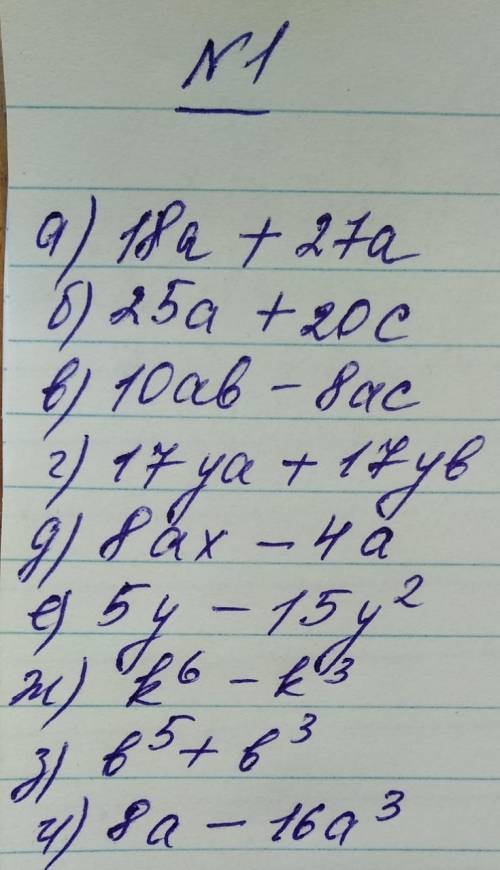 №1
а) 18a + 27a
б) 25a + 20c
в) 10ab - 8ac
г) 17ya + 17yb
д) 8ax - 4a
е) 5y - 15y²
ж) k⁶ - k³
з) b⁵ + b³
и) 8a - 16a³